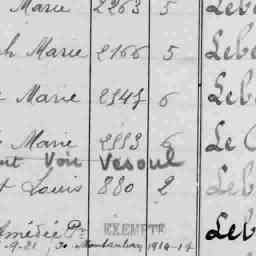 Marie 2263 5 Leb
h Marie 2166 5 Leb
Marie 2547 6 Leb
Marie 2553 6 Le
Voir Vesoul
t Louis 880 2 Leb
Amédée Pre EXEMPTÉ Leb
9-21, 30 Montauban 1914-14